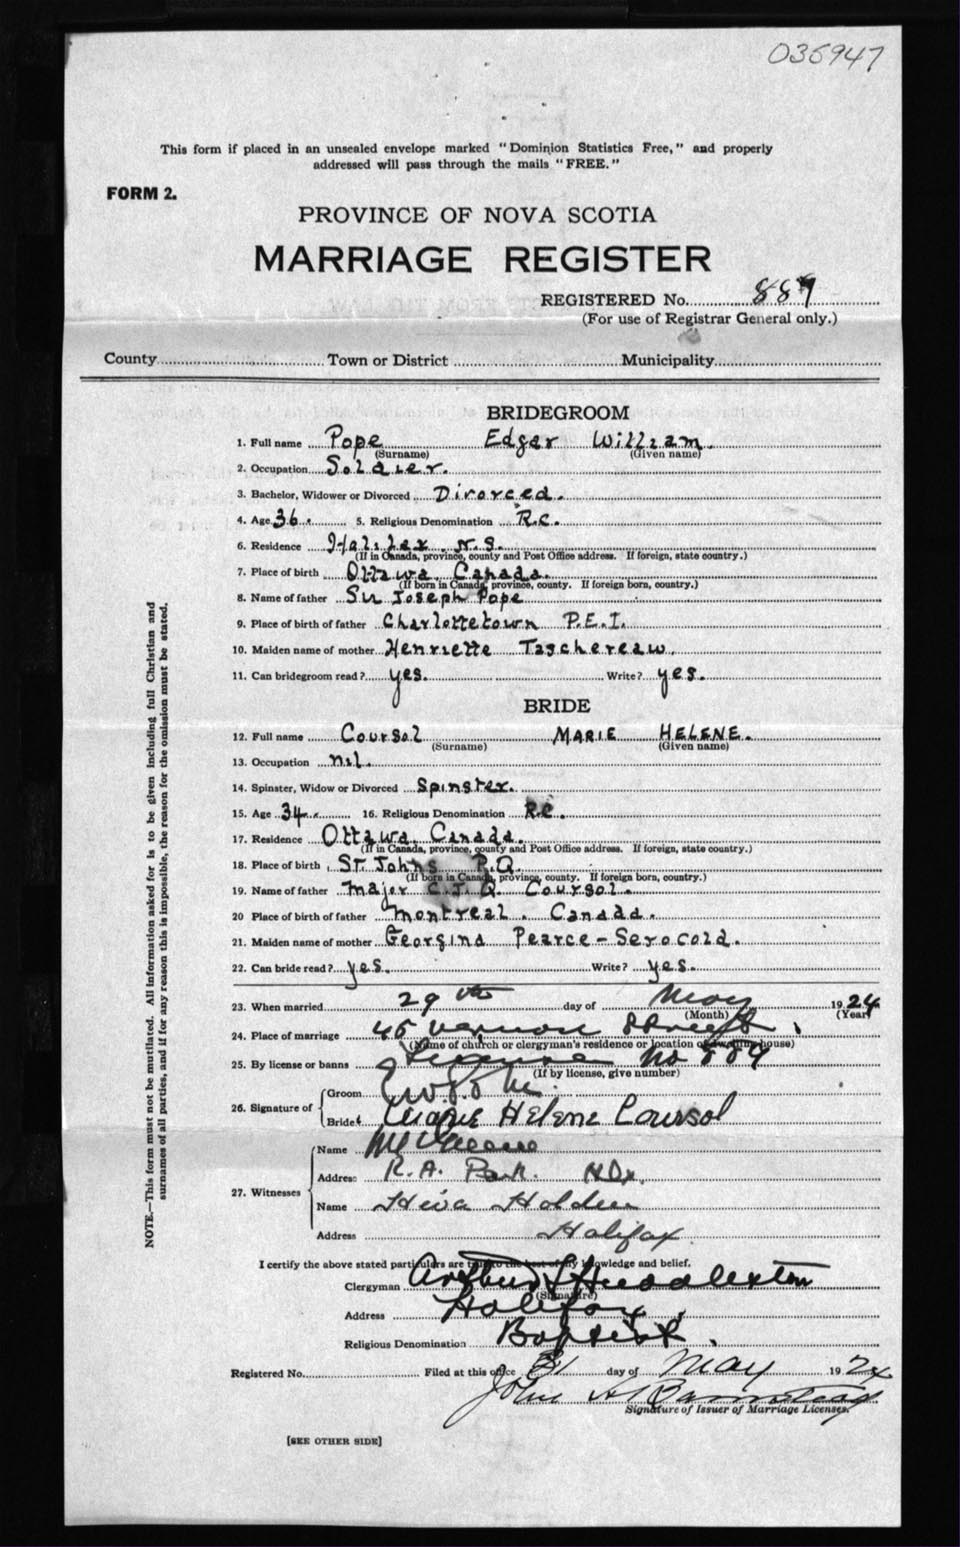 035947
This form if placed in an unsealed envelope marked "Dominion Statistics Free," and properly
addressed will pass through the mails "FREE."
FORM 2.
PROVINCE OF NOVA SCOTIA
MARRIAGE REGISTER
REGISTERED No. 889
(For use of Registrar General only.)
County Town or District Municipality
BRIDEGROOM
1. Full name Pope Edgar William.
(Surname) (Given name)
2. Occupation Soldier.
3. Bachelor, Widower or Divorced Divorced.
4. Age 36. 5. Religious Denomination R.C.
6. Residence Halifax N.S.
(If in Canada, province, county and Post Office address. If foreign, state country.)
7. Place of birth Ottawa. Canada.
(If born in Canada, province, county. If foreign born, country.)
8. Name of father Sir Joseph Pope
9. Place of birth of father Charlottetown P.E.I.
10. Maiden name of mother Henriette Taschereau.
11. Can bridegroom read? yes. Write? yes.
BRIDE
12. Full name Coursol MARIE HELENE.
(Surname) (Given name)
13. Occupation nil.
14. Spinster, Widow or Divorced Spinster.
15. Age 34. 16. Religious Denomination R.C.
17. Residence Ottawa, Canada.
(If in Canada, province, county and Post Office address. If foreign, state country.)
18. Place of birth St. Johns P.Q.
(If born in Canada, province, county. If foreign born, country.)
19. Name of father Major C.J.Q. Coursol.
20 Place of birth of father Montreal. Canada.
21. Maiden name of mother Georgina Pearce-Serocold.
22. Can bride read? yes. Write? yes.
23. When married 29th day of May 1924
(Month) (Year)
24. Place of marriage 45 Vernon Street,
(Name of church or clergyman's residence or location of dwelling house)
25. By license or banns License No 889
(If by license, give number)
26. Signature of Groom
Bride Marie Helene Coursol
27. Witnesses
Name
Address R.A. Park. Hfx.
Name Holden
Address Halifax.
I certify the above stated particulars are true to the best of my knowledge and belief.
Clergyman Arthur S Huddleston
(Signature)
Address Halifax,
Religious Denomination Baptist.
Registered No. Filed at this office 31 day of May 1924
John H Barnstead
Signature of Issuer of Marriage Licenses.
[SEE OTHER SIDE]
NOTE.—This form must not be mutilated. All information asked for is to be given including full Christian and
surnames of all parties, and if for any reason this is impossible, the reason for the omission must be stated.